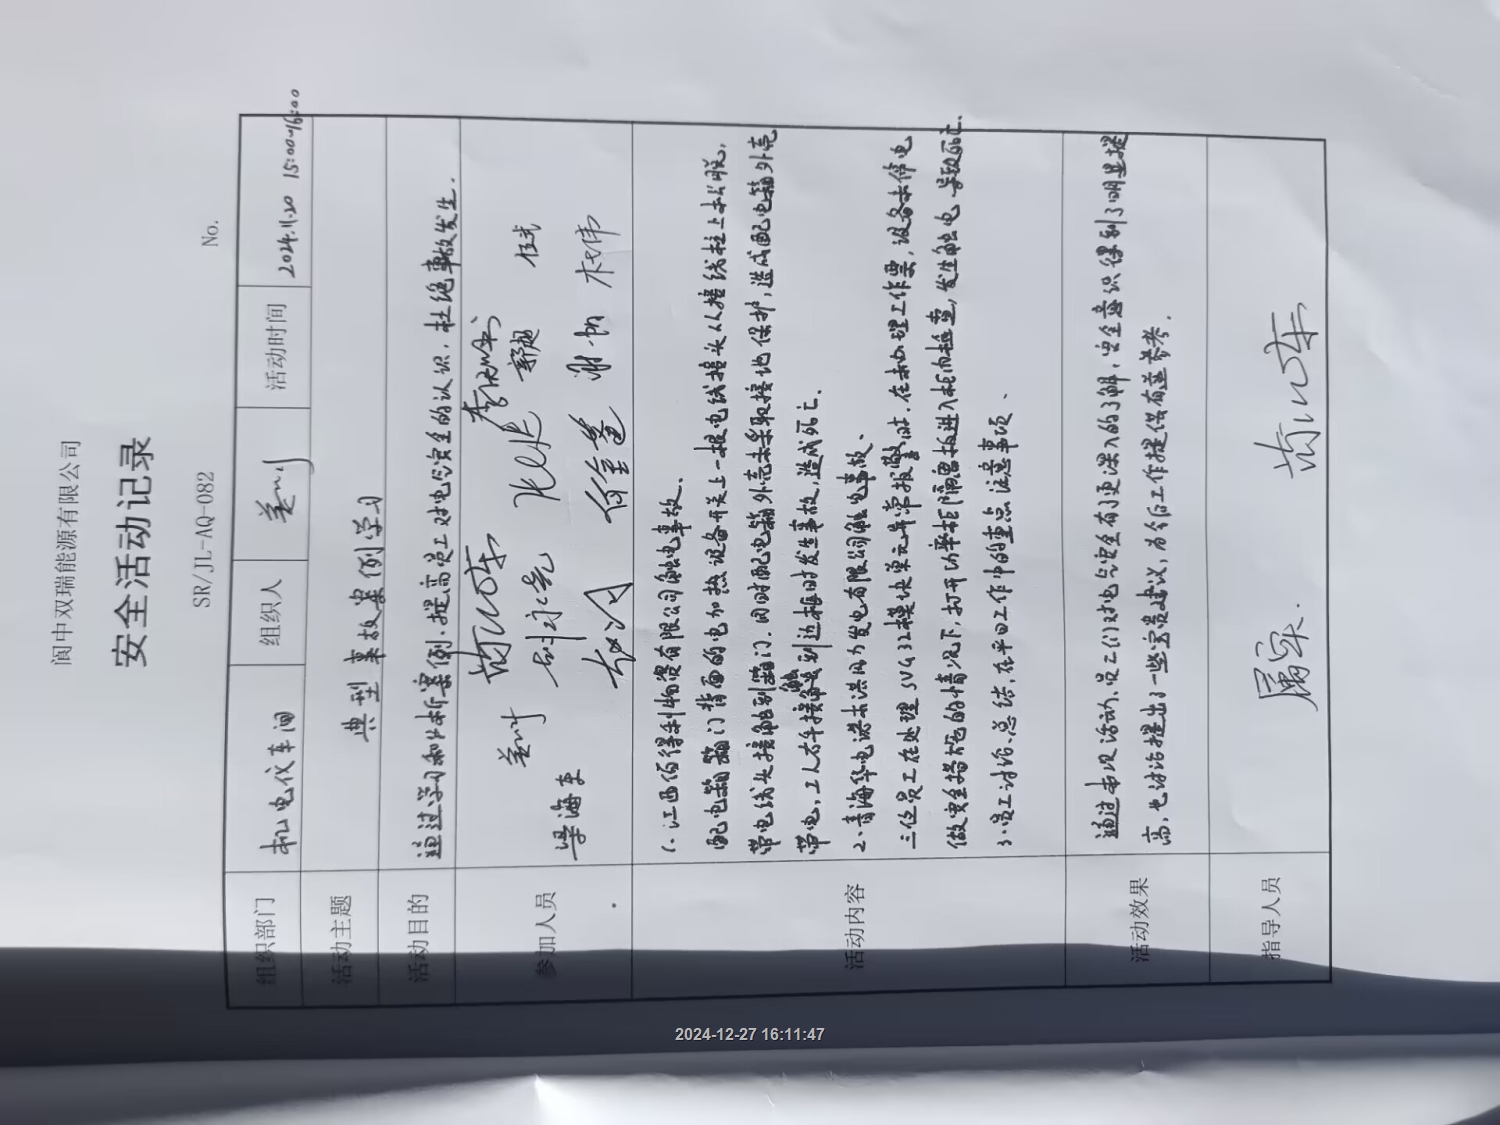 阆中双瑞能源有限公司
安全活动记录
SR/JL-AQ-082 No.
组织部门 机电仪车间 组织人 活动时间 2024.11.20 15:00-16:00
活动主题 典型事故案例学习
活动目的 通过学习和分析案例,提高员工对电气安全的认识,杜绝事故发生.
参加人员
郭超 任武
刘永亮 谢帆 杜伟
梁海东
活动内容
1. 江西佰得利物资有限公司触电事故.
配电箱箱门背面的电加热设备开关上一根电线接头从接线柱上松脱,
带电线头接触到箱门.同时配电箱外壳未采取接地保护,造成配电箱外壳
带电,工人右手接触到边框时发生事故,造成死亡.
2. 青海华电诺木洪风力发电有限公司触电事故.
三位员工在处理SVG 32模块单元异常报警时.在未办理工作票,设备未停电
做安全措施的情况下,打开功率柜隔离挡板进入柜内检查,发生触电,导致死亡.
3. 员工讨论、总结,在平日工作中的重点注意事项、
活动效果 通过本次活动,员工们对电气安全有了更深入的了解,安全意识得到了明显提
高,也讨论提出了一些宝贵建议,为今后工作提供有益参考.
指导人员
2024-12-27 16:11:47